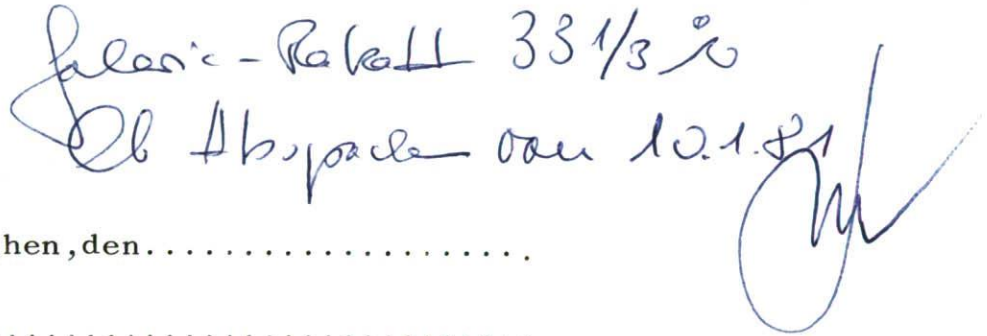 Galerie-Rabatt 33 1/3 %
lt Absprache vom 10.1.81
hen,den....................